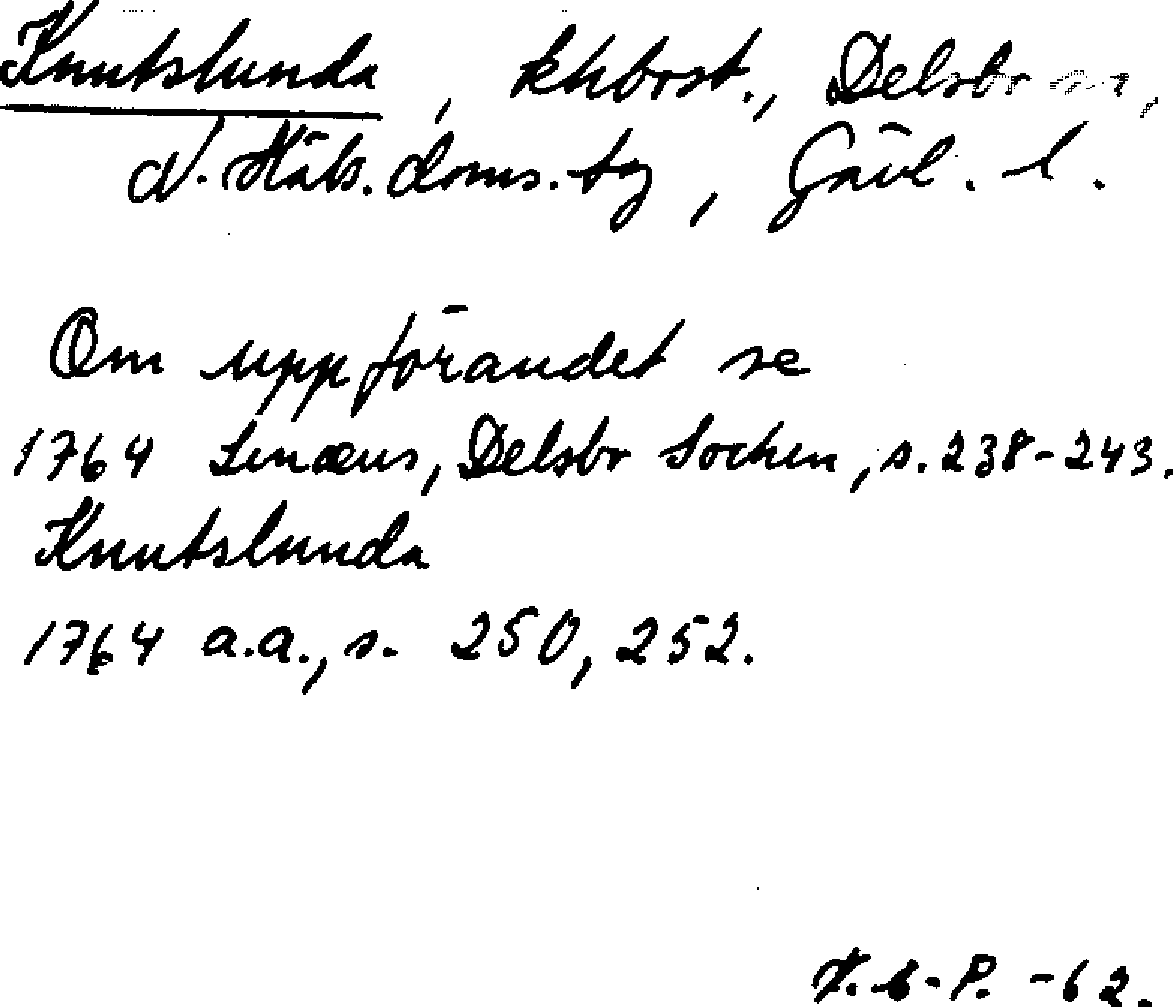 Knutslunda, khbrst., Delsbo sn,
N. Häls. doms. tg, Gävl. l.
Om uppförandet se
1764 Lenæus, Delsbo Sochen, s. 238-243.
Knutslunda
1764 a.a., s. 250, 252.
-P. -62.